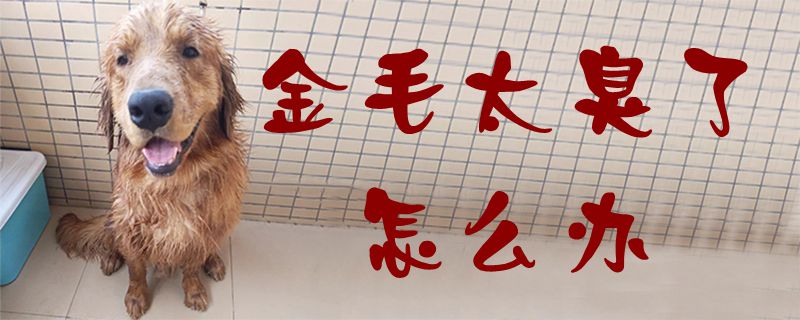 金毛太臭了
怎么办